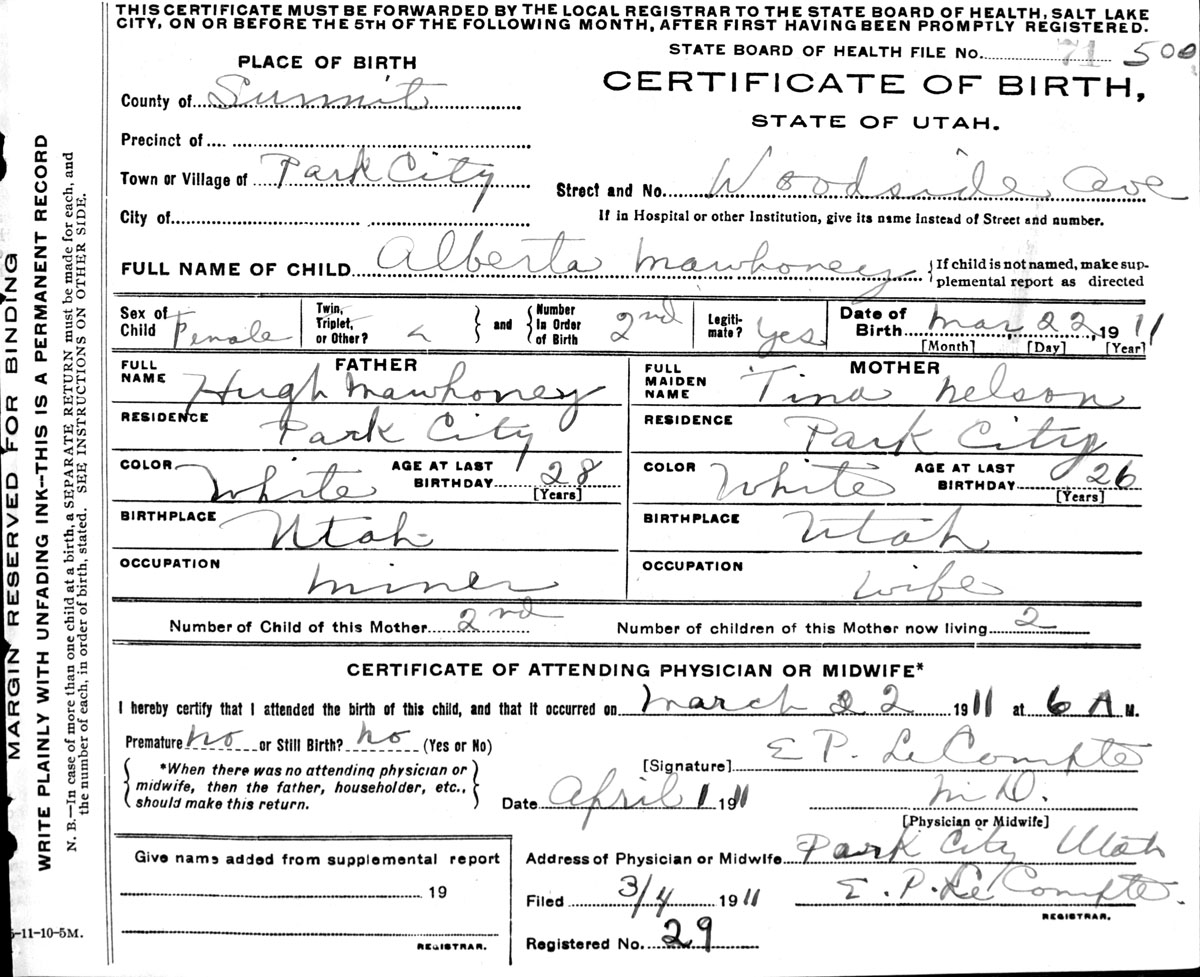 THIS CERTIFICATE MUST BE FORWARDED BY THE LOCAL REGISTRAR TO THE STATE BOARD OF HEALTH, SALT LAKE
CITY, ON OR BEFORE THE 5TH OF THE FOLLOWING MONTH, AFTER FIRST HAVING BEEN PROMPTLY REGISTERED.
STATE BOARD OF HEALTH FILE No. 71 500
PLACE OF BIRTH
CERTIFICATE OF BIRTH,
STATE OF UTAH.
County of Summit
Precinct of
Town or Village of Park City
Street and No. Woodside Ave
City of
If in Hospital or other Institution, give its name instead of Street and number.
FULL NAME OF CHILD Alberta Mawhoney
{If child is not named, make sup-
plemental report as directed
Sex of Child Female
Twin, Triplet, or Other?
and
Number In Order of Birth 2nd
Legiti- mate? Yes
Date of Birth Mar 22, 1911
[Month] [Day] [Year]
FATHER
FULL NAME Hugh Mawhoney
RESIDENCE Park City
COLOR White AGE AT LAST BIRTHDAY 28
[Years]
BIRTHPLACE Utah
OCCUPATION miner
MOTHER
FULL MAIDEN NAME Tina Nelson
RESIDENCE Park City
COLOR White AGE AT LAST BIRTHDAY 26
[Years]
BIRTHPLACE Utah
OCCUPATION wife
Number of Child of this Mother 2nd Number of children of this Mother now living 2
CERTIFICATE OF ATTENDING PHYSICIAN OR MIDWIFE*
I hereby certify that I attended the birth of this child, and that it occurred on March 22 1911 at 6 A M.
Premature No or Still Birth? No (Yes or No)
*When there was no attending physician or
midwife, then the father, householder, etc.,
should make this return.
[Signature] E P. LeCompte
Date April 1 1911 M.D.
[Physician or Midwife]
Give name added from supplemental report
19
REGISTRAR.
Address of Physician or Midwife Park City Utah
Filed 3/4 1911 E. P. Le Compte.
REGISTRAR.
Registered No. 29
MARGIN RESERVED FOR BINDING
WRITE PLAINLY WITH UNFADING INK--THIS IS A PERMANENT RECORD
N. B.—In case of more than one child at a birth, a SEPARATE RETURN must be made for each, and
the number of each, in order of birth, stated. SEE INSTRUCTIONS ON OTHER SIDE.
-11-10-5M.